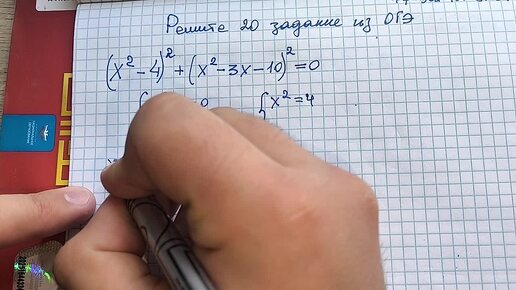 Решите 20 задание из ОГЭ
(x²-4)²+(x²-3x-10)²=0
{ 0 { x²=4